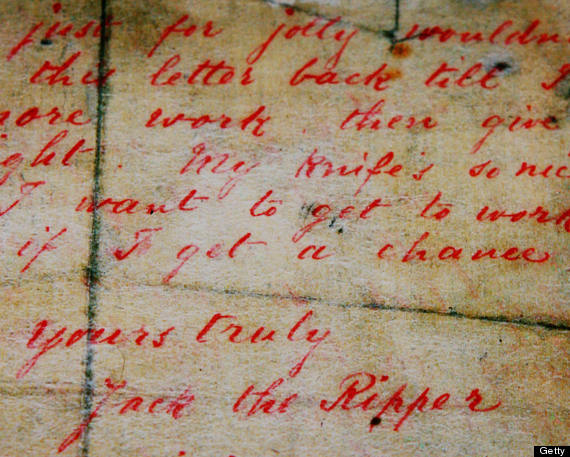 just for jolly wouldn
this letter back till I
more work, then give
ight. My knife's so nic
I want to get to work
if I get a chance
yours truly
Jack the Ripper
Getty